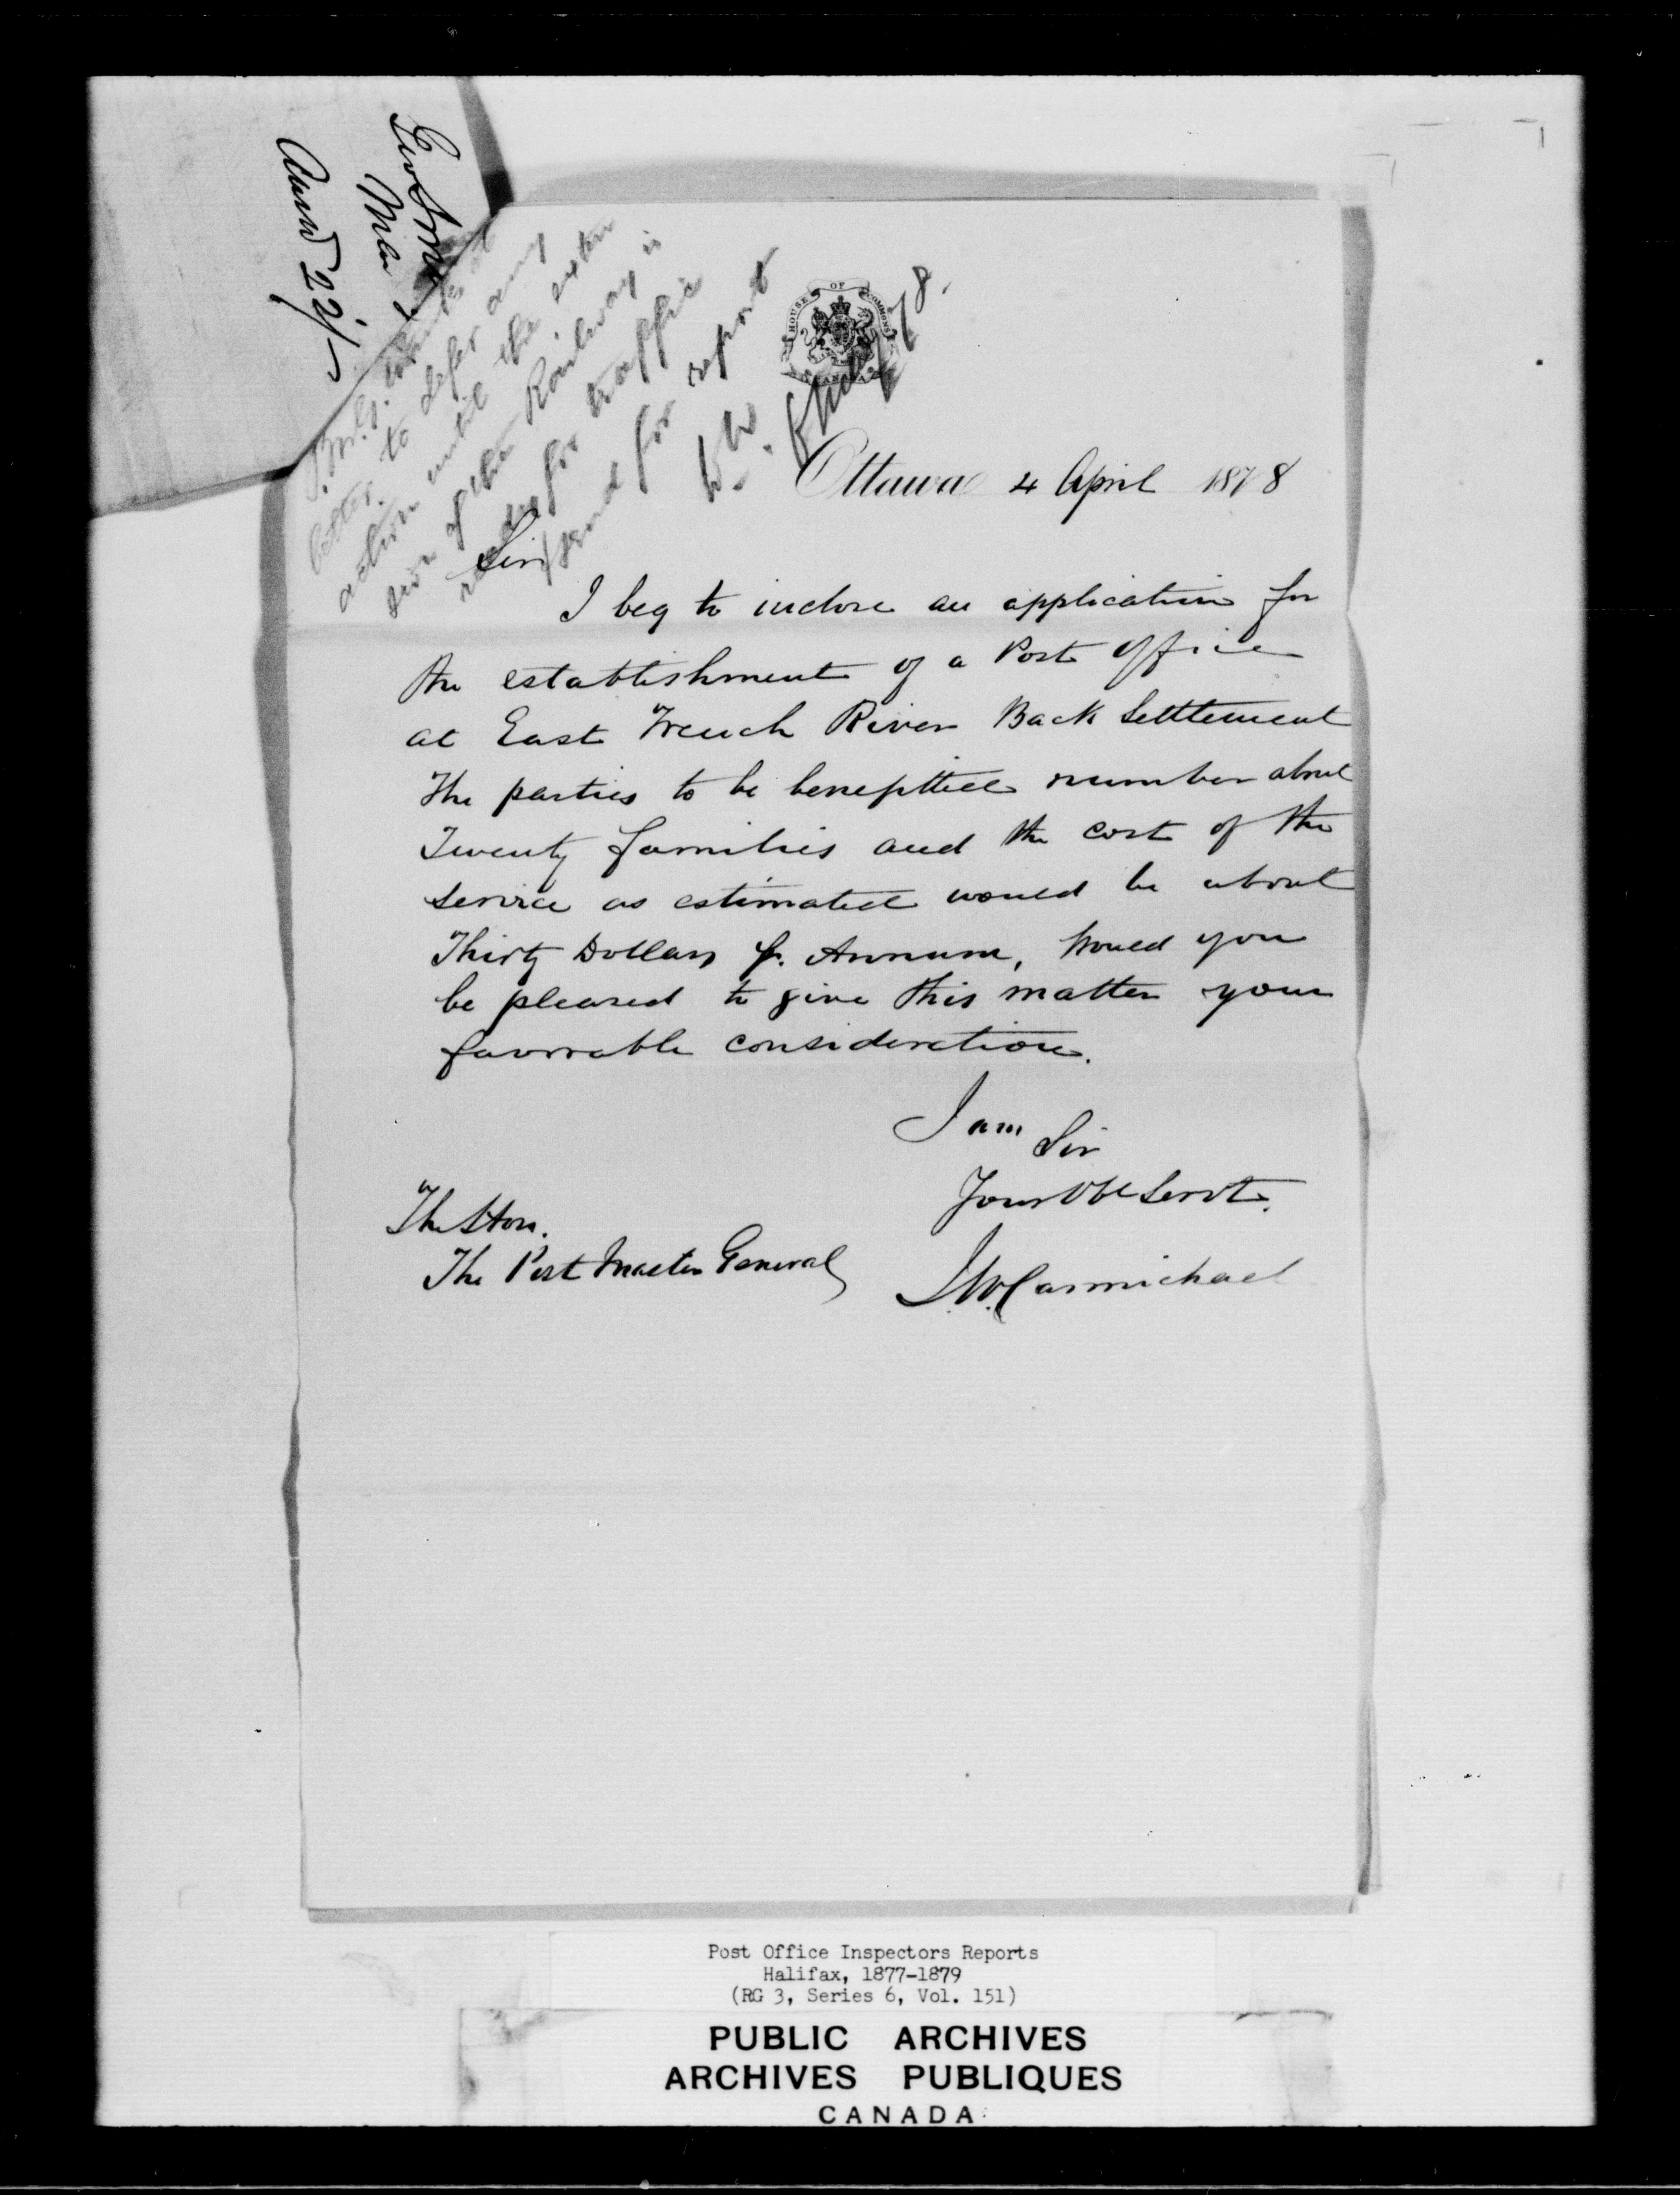 HOUSE OF COMMONS
CANADA
to defer any
action until the exten
sion of the Railway is
ready for traffic
send for report
Ottawa 4 April 1878
Sir
I beg to inclose an application for
the establishment of a Post Office
at East French River Back Settlement
The parties to be benefitted number about
Twenty families and the cost of the
service as estimated would be about
Thirty Dollars p. Annum, Would you
be pleased to give this matter your
favorable consideration.
I am
Sir
Your Obt Servt.
J.W.Carmichael
The Hon.
The Post Master General
Post Office Inspectors Reports
Halifax, 1877-1879
(RG 3, Series 6, Vol. 151)
PUBLIC ARCHIVES
ARCHIVES PUBLIQUES
CANADA